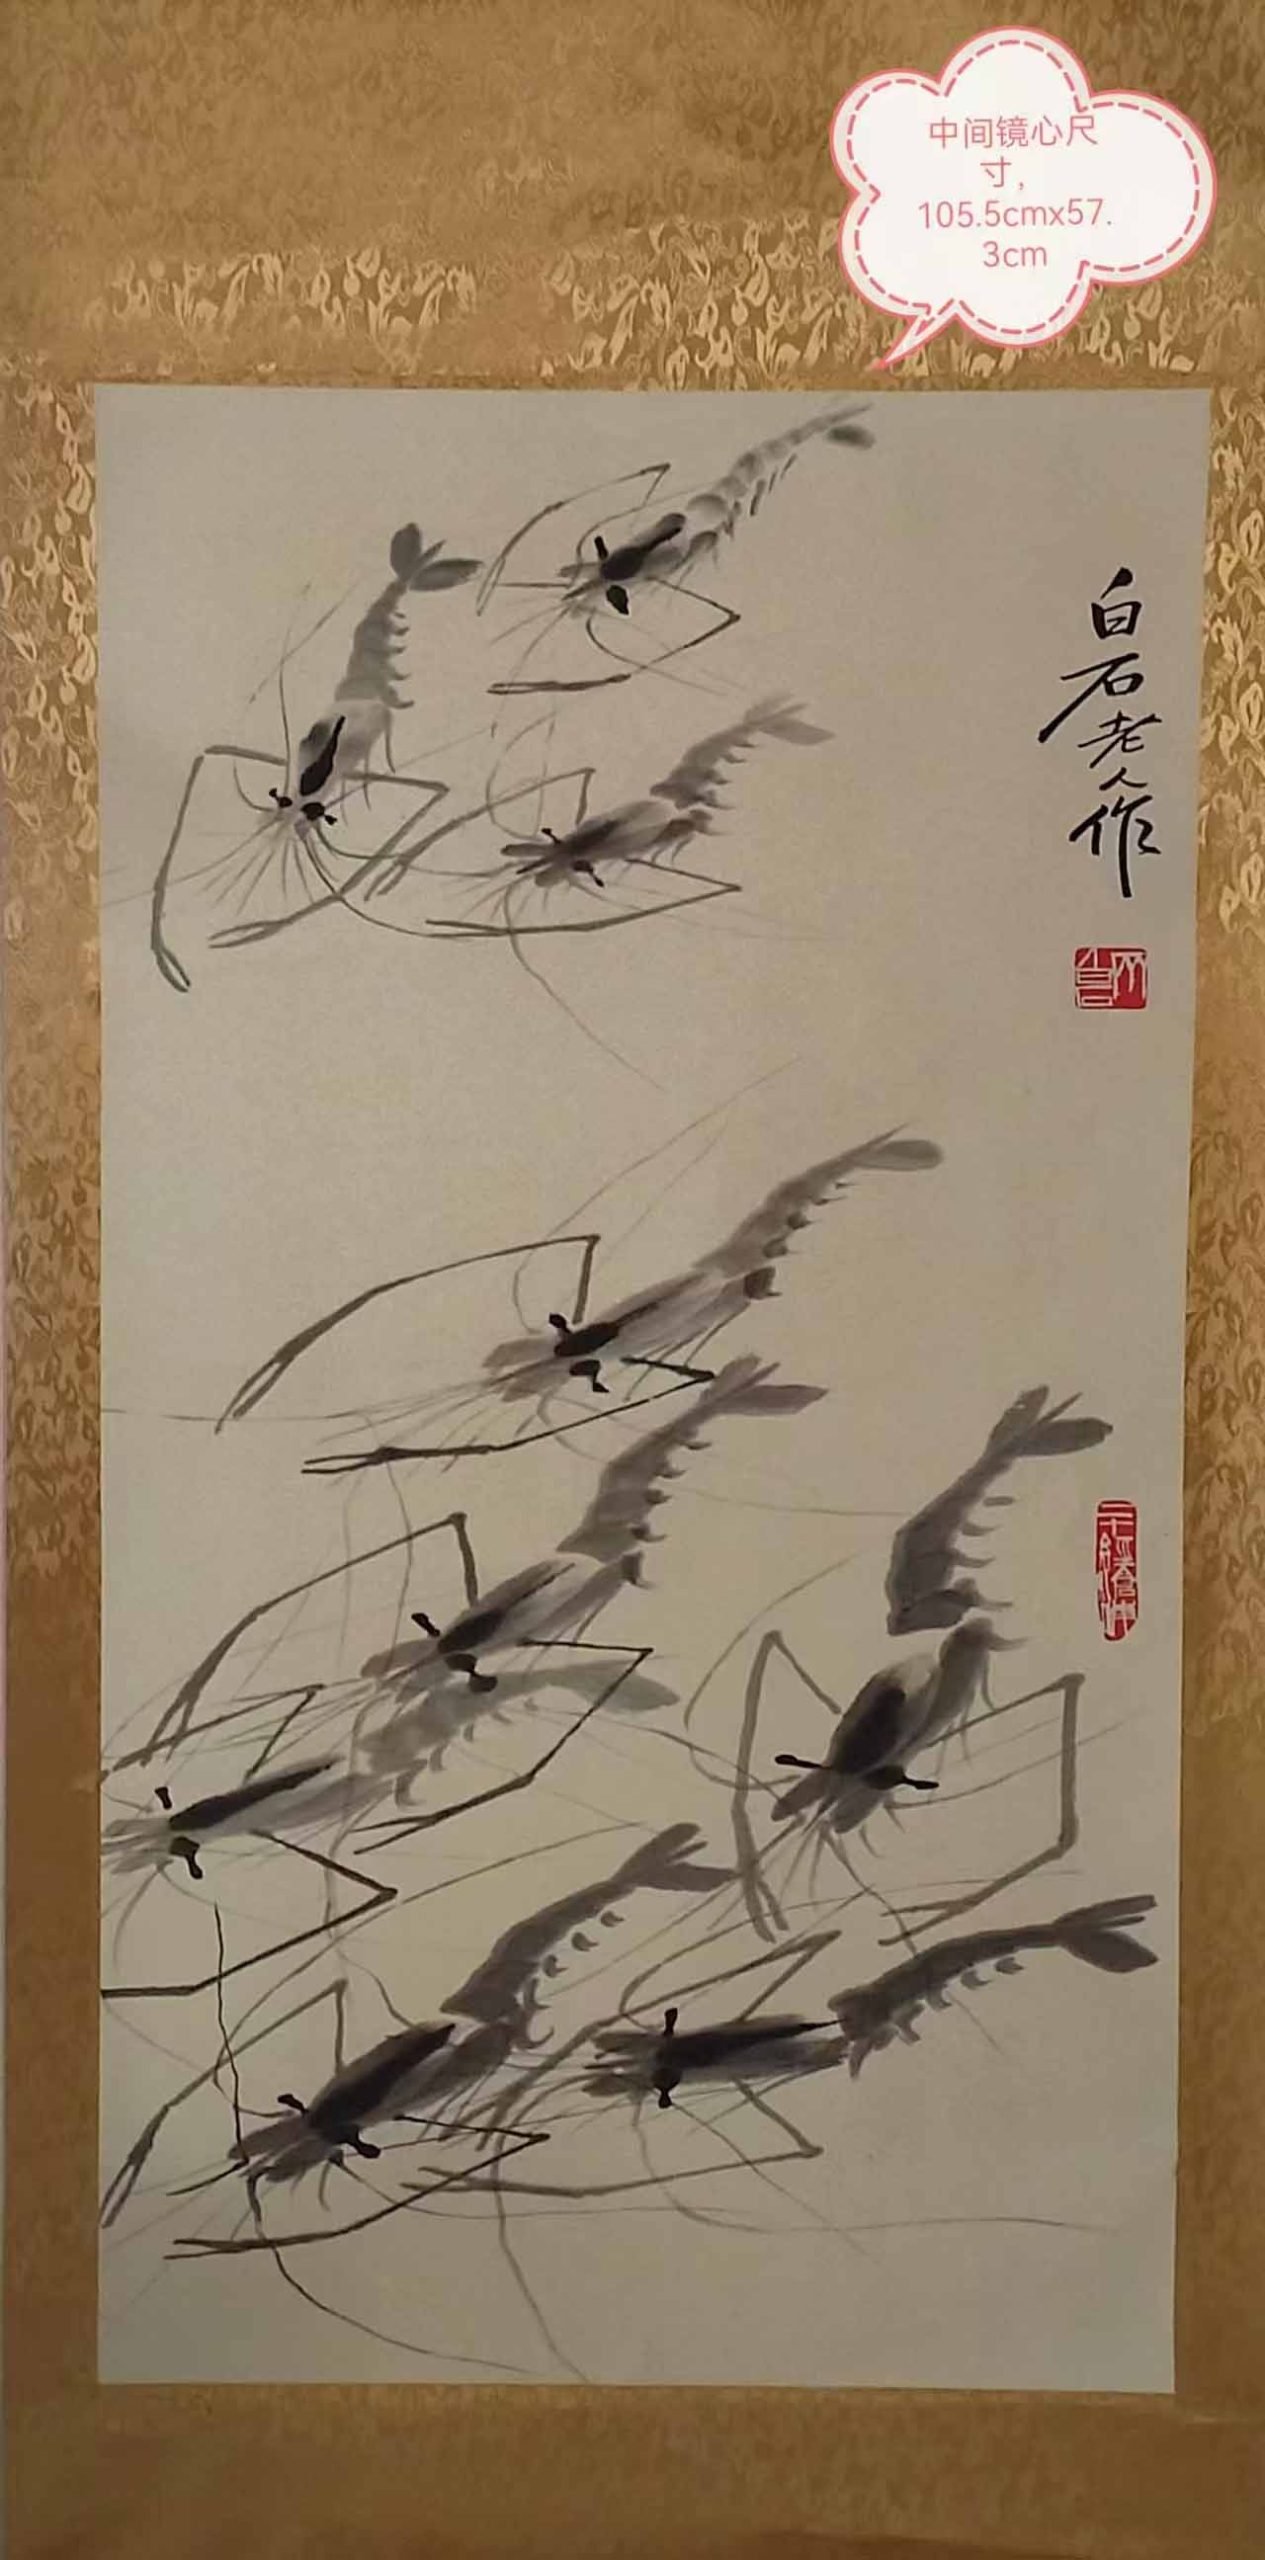 中间镜心尺
寸，
105.5cmx57.
3cm
白石老人作